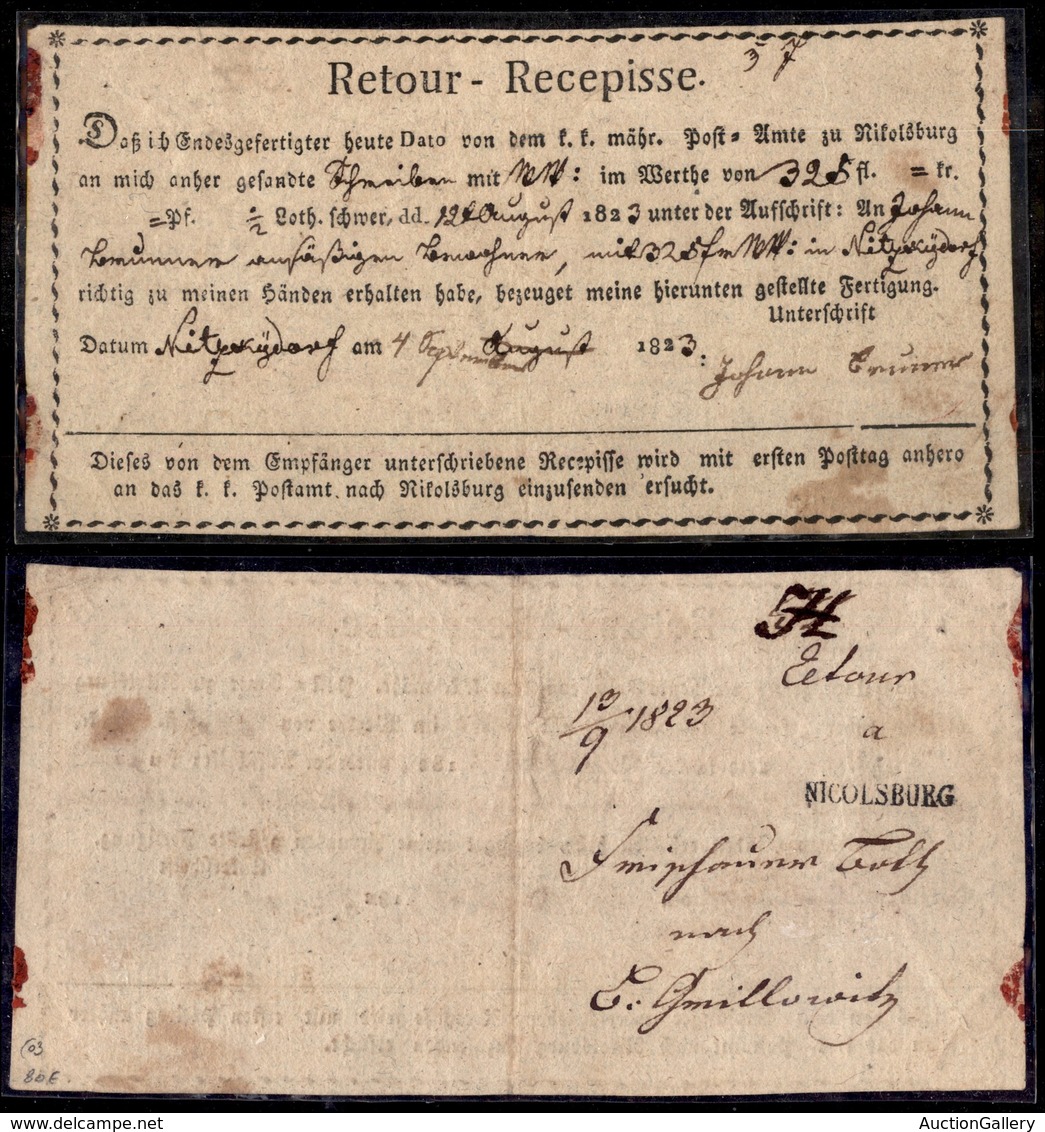 5 7
Retour - Recepisse.
Daß ich Endesgefertigter heute Dato von dem k. k. mähr. Post = Amte zu Nikolsburg
an mich anher gesandte Schreiben mit WW: im Werthe von 325 fl. = kr.
= Pf. Loth. schwer, dd. 12t August 1823 unter der Aufschrift: An Johann
Brunner ansäßigen Bewohner, mit 325 f WW: in Nitzkydorf
richtig zu meinen Händen erhalten habe, bezeuget meine hierunten gestellte Fertigung.
Unterschrift
Datum Nitzkydorf am 4 September August 1823.
Johann Brunner
Dieses von dem Empfänger unterschriebene Recepisse wird mit ersten Posttag anhero
an das k. k. Postamt nach Nikolsburg einzusenden ersucht.
Retour
13/9 1823
a
NICOLSBURG
nach
AuctionGallery